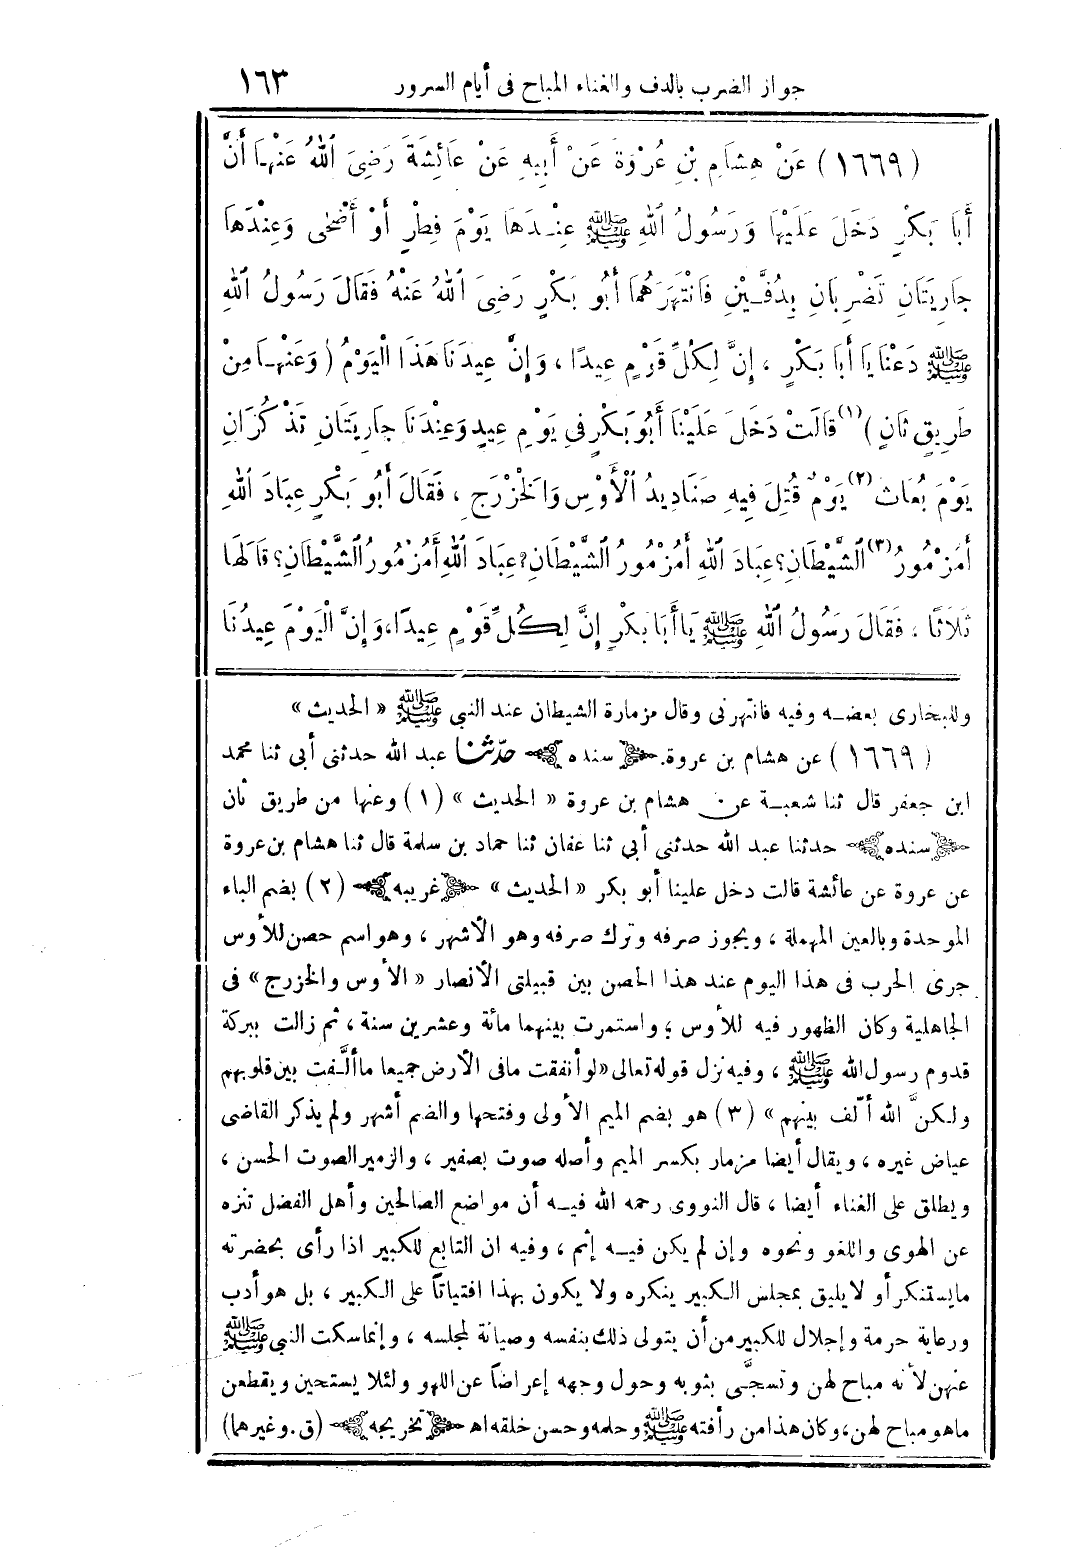 جواز الضرب بالدف والغناء المباح فى أيام السرور ١٦٣
(١٦٦٩) عَنْ هِشَامِ بْنِ عُرْوَةَ عَنْ أَبِيهِ عَنْ عَائِشَةَ رَضِىَ اللهُ عَنْهَا أَنَّ
أَبَا بَكْرٍ دَخَلَ عَلَيْهَا وَرَسُولُ اللهِ ﷺ عِنْدَهَا يَوْمَ فِطْرٍ أَوْ أَضْحَى وَعِنْدَهَا
جَارِيَتَانِ تَضْرِبَانِ بِدُفَّيْنِ فَانْتَهَرَهُمَا أَبُو بَكْرٍ رَضِىَ اللهُ عَنْهُ فَقَالَ رَسُولُ اللهِ
ﷺ دَعْنَا يَا أَبَا بَكْرٍ ، إِنَّ لِكُلِّ قَوْمٍ عِيدًا ، وَإِنَّ عِيدَنَا هَذَا الْيَوْمُ (وَعَنْهَا مِنْ
طَرِيقٍ ثَانٍ) (١) قَالَتْ دَخَلَ عَلَيْنَا أَبُو بَكْرٍ فِى يَوْمِ عِيدٍ وَعِنْدَنَا جَارِيَتَانِ تَذْكُرَانِ
يَوْمَ بُعَاثَ (٢) يَوْمٌ قُتِلَ فِيهِ صَنَادِيدُ الْأَوْسِ وَالْخَزْرَجِ ، فَقَالَ أَبُو بَكْرٍ عِبَادَ اللهِ
أَمُزْمُورُ (٣) الشَّيْطَانِ؟ عِبَادَ اللهِ أَمُزْمُورُ الشَّيْطَانِ؟ عِبَادَ اللهِ أَمُزْمُورُ الشَّيْطَانِ؟ قَالَهَا
ثَلَاثًا ، فَقَالَ رَسُولُ اللهِ ﷺ يَا أَبَا بَكْرٍ إِنَّ لِكُلِّ قَوْمٍ عِيدًا، وَإِنَّ الْيَوْمَ عِيدُنَا
وللبخارى بعضه وفيه فانتهرنى وقال مزمارة الشيطان عند النبي ﷺ « الحديث »
(١٦٦٩) عن هشام بن عروة. سنده حدّثنا عبد الله حدثنى أبي ثنا محمد
ابن جعفر قال ثنا شعبة عن هشام بن عروة « الحديث » (١) وعنها من طريق ثان
سنده حدثنا عبد الله حدثنى أبي ثنا عفان ثنا حماد بن سلمة قال ثنا هشام بن عروة
عن عروة عن عائشة قالت دخل علينا أبو بكر « الحديث » غريبه (٢) بضم الباء
الموحدة وبالعين المهملة ، ويجوز صرفه وترك صرفه وهو الأشهر ، وهو اسم حصن للأوس
جرى الحرب فى هذا اليوم عند هذا الحصن بين قبيلتى الأنصار « الأوس والخزرج » فى
الجاهلية وكان الظهور فيه للأوس ؛ واستمرت بينهما مائة وعشرين سنة ، ثم زالت ببركة
قدوم رسول الله ﷺ ، وفيه نزل قوله تعالى «لو أنفقت مافى الأرض جميعا ما ألَّفت بين قلوبهم
ولكنَّ الله ألّف بينهم » (٣) هو بضم الميم الأولى وفتحها والضم أشهر ولم يذكر القاضى
عياض غيره ، ويقال أيضا مزمار بكسر الميم وأصله صوت بصفير ، والزمير الصوت الحسن ،
ويطلق على الغناء أيضا ، قال النووى رحمه الله فيه أن مواضع الصالحين وأهل الفضل تنزه
عن الهوى واللغو ونحوه وإن لم يكن فيه إثم ، وفيه ان التابع للكبير اذا رأى بحضرته
مايستنكر أو لايليق بمجلس الكبير ينكره ولا يكون بهذا افتياتاً على الكبير ، بل هو أدب
ورعاية حرمة وإجلال للكبير من أن يتولى ذلك بنفسه وصيانة لمجلسه ، وإنما سكت النبي ﷺ
عنهن لأنه مباح لهن وتسجَّى بثوبه وحول وجهه إعراضاً عن اللهو ولئلا يستحين ويقطعن
ماهو مباح لهن، وكان هذا من رأفته ﷺ وحلمه وحسن خلقه اه تخريجه (ق. وغيرهما)